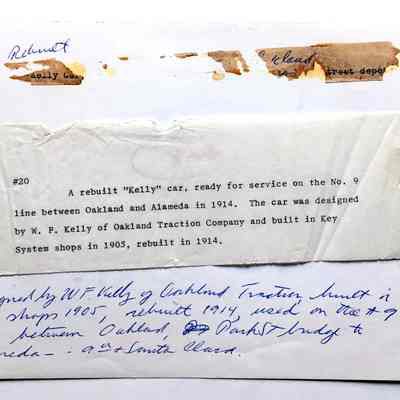 Rebuilt
Kelly
Oakland
street depo
#20
A rebuilt "Kelly" car, ready for service on the No. 9
line between Oakland and Alameda in 1914. The car was designed
by W. P. Kelly of Oakland Traction Company and built in Key
System shops in 1905, rebuilt in 1914.
gned by W F Kelly of Oakland Traction, built i
shops 1905, rebuilt 1914, used on
between Oakland, Park St bridge to
meda - : and Santa Clara.